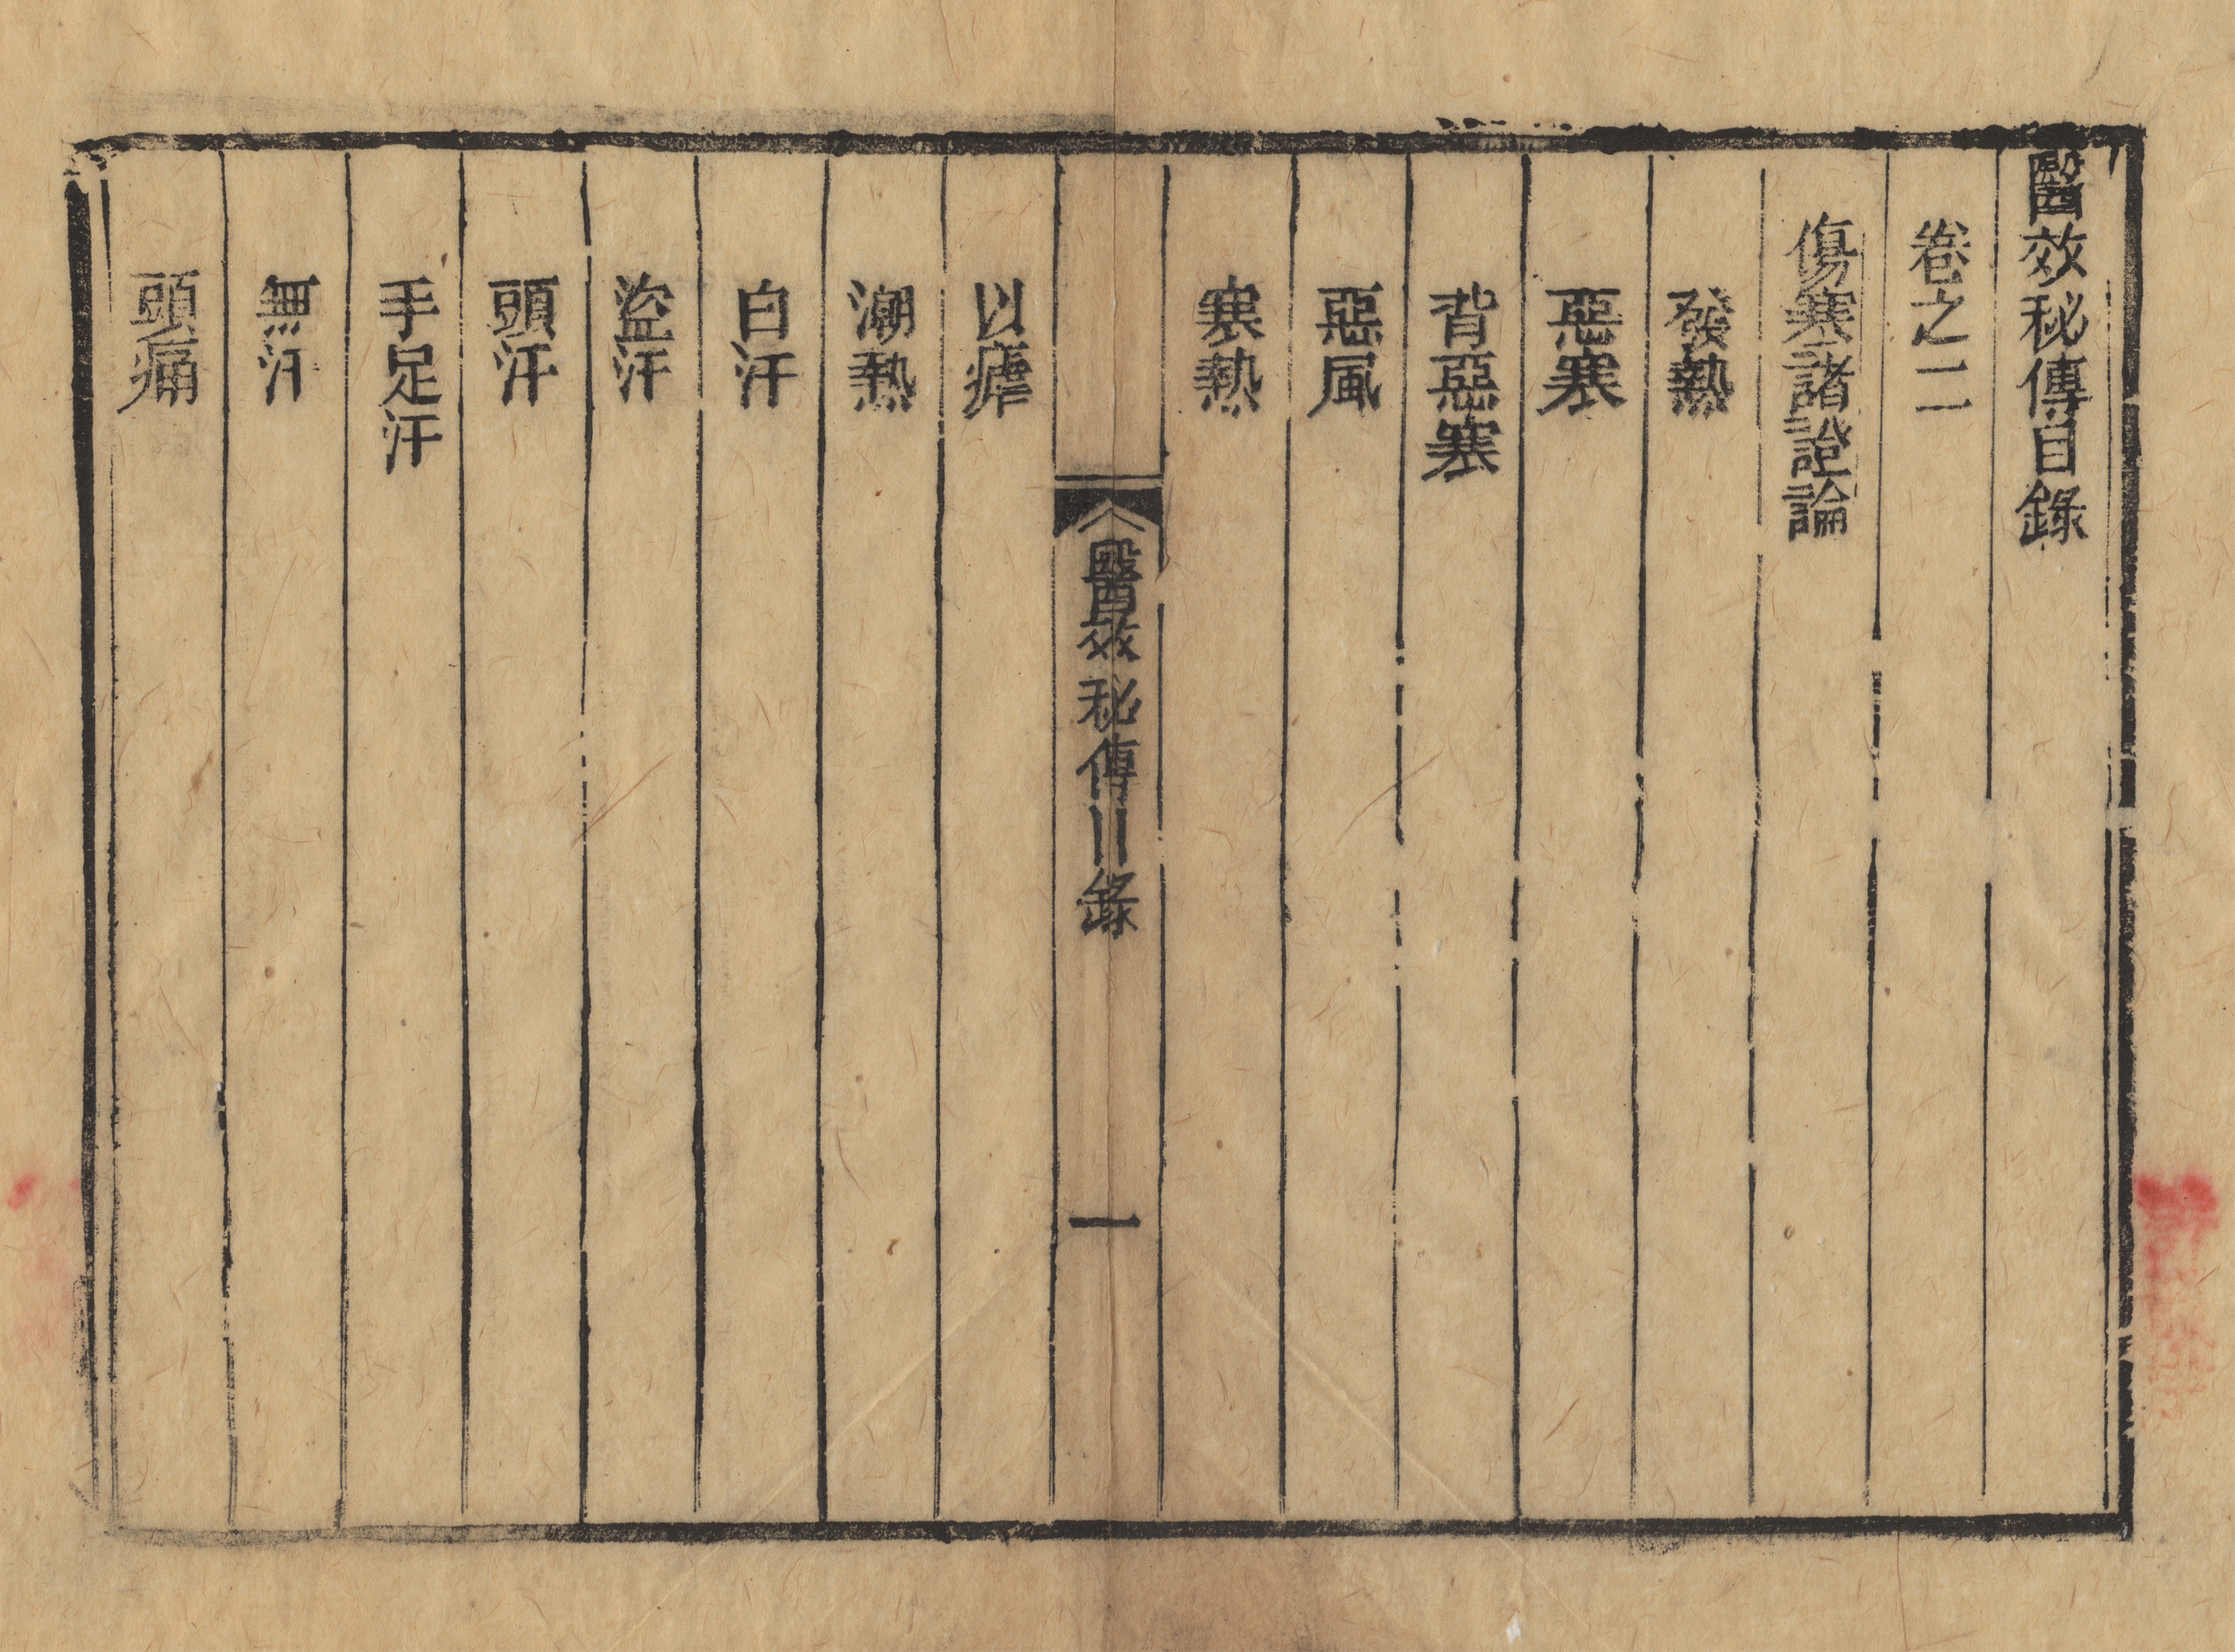 醫效秘傳目錄
卷之二
傷寒諸證論
發熱
惡寒
背惡寒
惡風
寒熱
醫效秘傳目錄
一
以瘧
潮熱
自汗
盜汗
頭汗
手足汗
無汗
頭痛